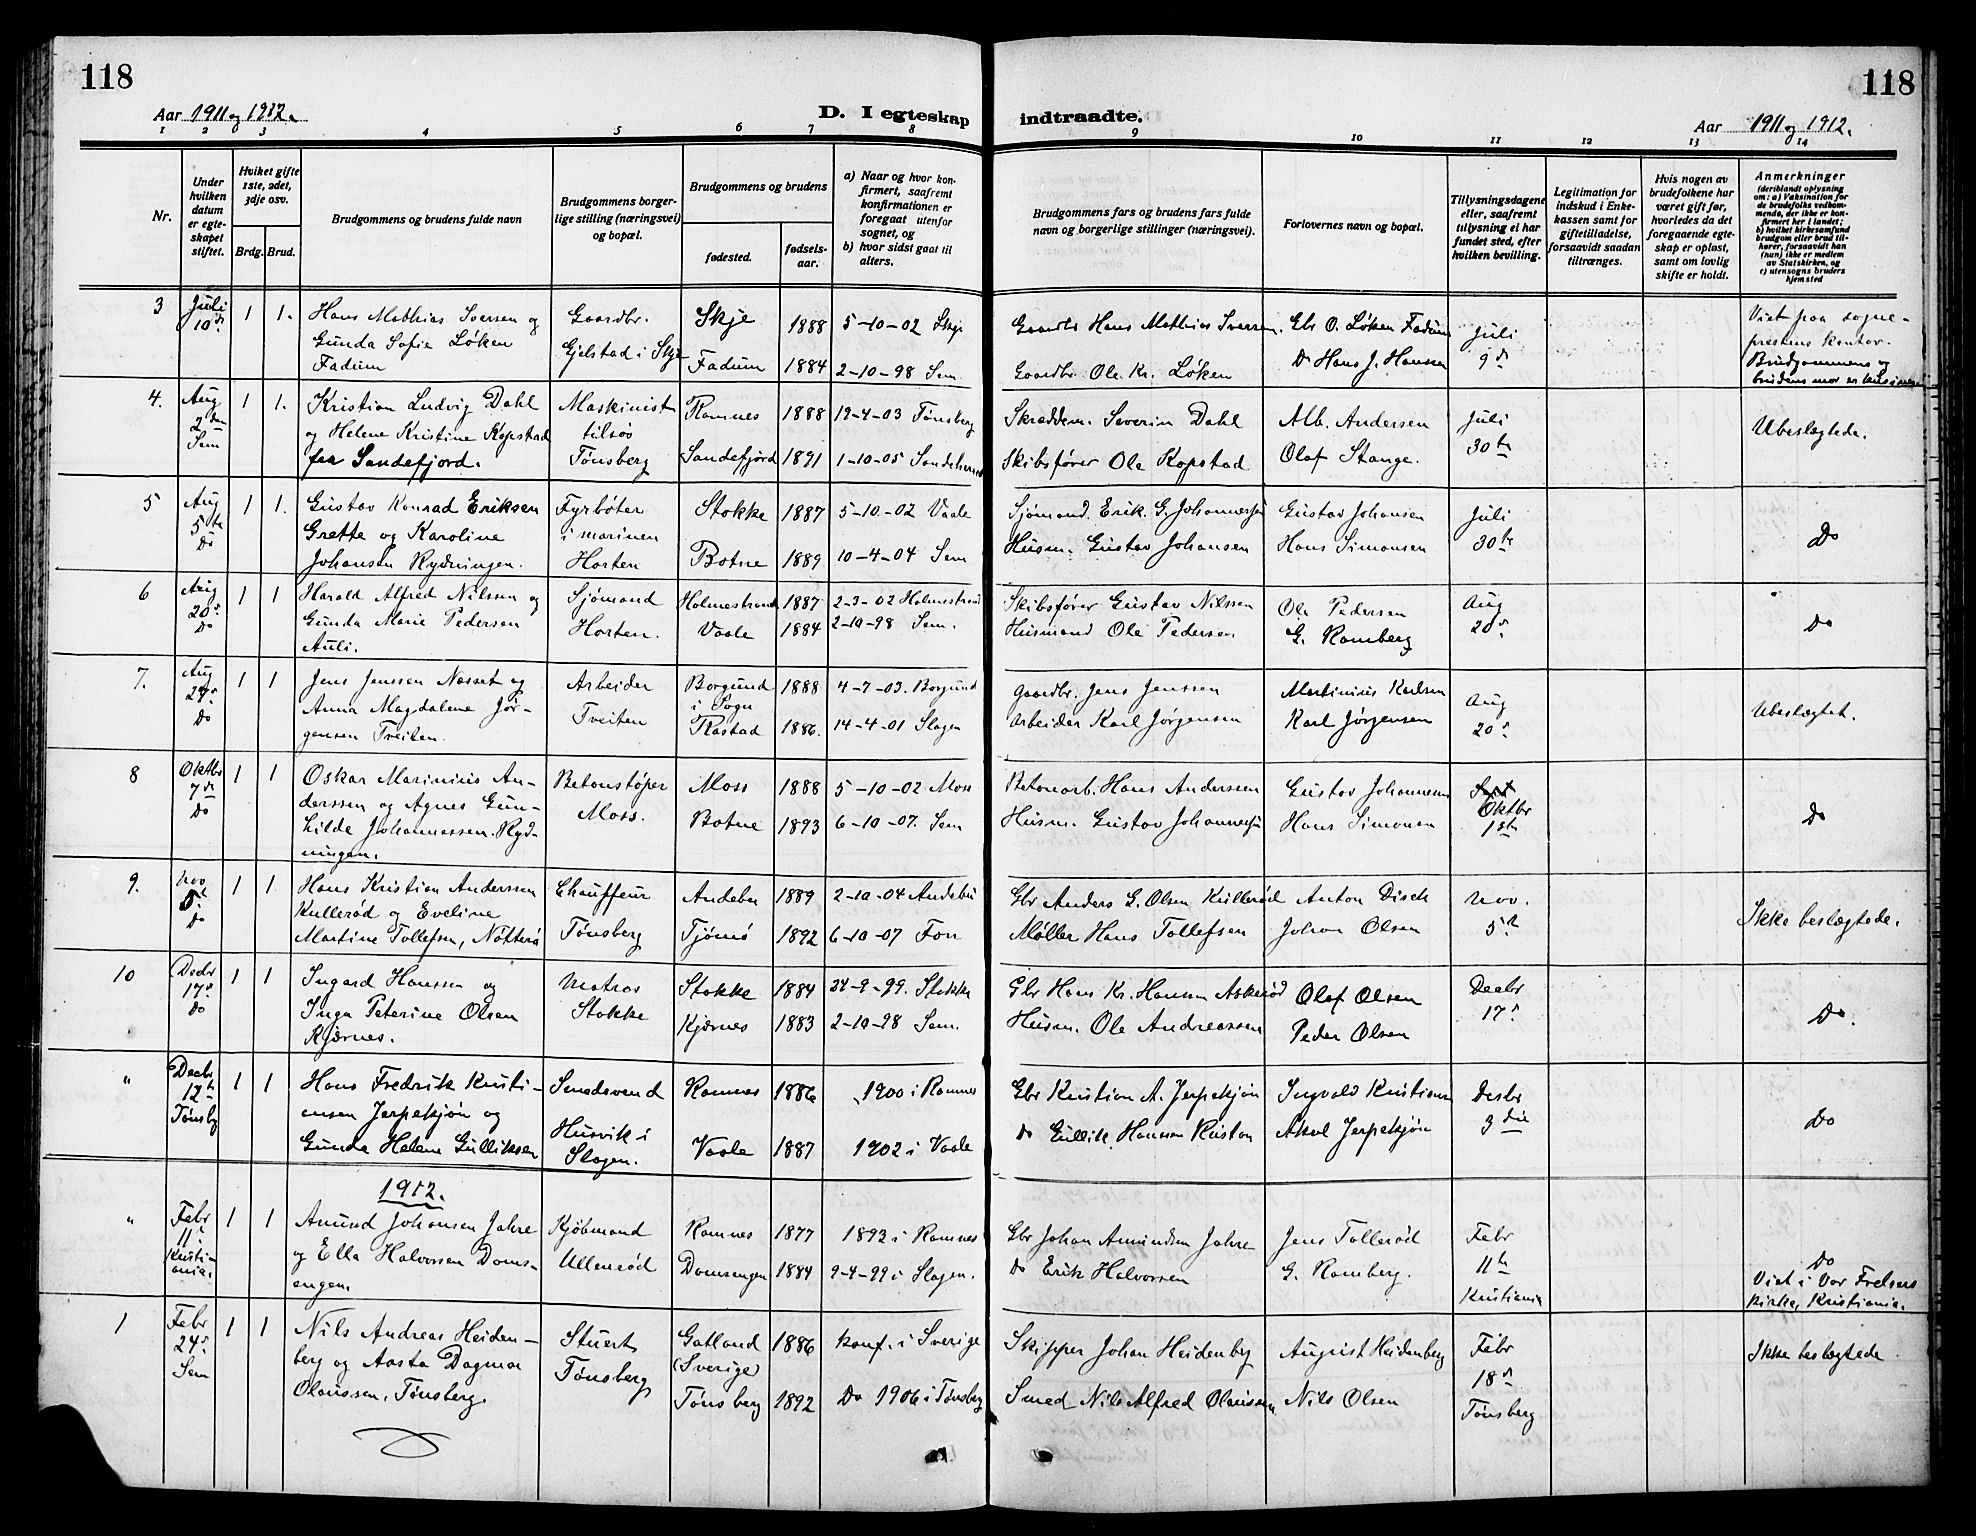 118
118
Aar 1911 og 1912.
D. I egteskap indtraadte.
Aar 1911 og 1912.
1 2 3 4 5 6 7 8 9 10 11 12 13 14
Nr.
Under hvilken datum er egteskapet stiftet.
Hviket gifte 1ste, 2det, 3dje osv.
Brdg. Brud.
Brudgommens og brudens fulde navn
Brudgommens borgerlige stilling (næringsvei) og bopæl.
Brudgommens og brudens
fødested.
fødselsaar.
a) Naar og hvor konfirmert, saafremt konfirmationen er foregaat utenfor sognet, og
b) hvor sidst gaat til alters.
Brudgommens fars og brudens fars fulde navn og borgerlige stillinger (næringsvei).
Forlovernes navn og bopæl.
Tillysningsdagene eller, saafremt tillysning ei har fundet sted, efter hvilken bevilling.
Legitimation for indskud i Enkekassen samt for giftetilladelse, forsaavidt saadan tiltrænges.
Hvis nogen av brudefolkene har været gift før, hvorledes da det foregaaende egteskap er opløst, samt om lovlig skifte er holdt.
Anmerkninger
(deriblandt oplysning om: a) Vaksination for de brudefolks vedkommende, der ikke er konfirmert her i landet; b) hvilket kirkesamfund brudgom eller brud tilhører, forsaavidt han (hun) ikke er medlem av Statskirken, og c) utensogns bruders hjemsted
3 Juli 10de 1 1. Hans Mathias Iversen og Gunda Sofie Løken Fadum
Gaardbr. Gjelstad i Skje
Skje 1888 5-10-02 Skje
Fadum 1884 2-10-98 Sem
Gaardbr Hans Mathias Iversen.
Gaardbr. Ole Kr. Løken
Gbr O. Løken Fadum
Do Hans J. Hansen
Juli 9de
Viet paa sogneprestens kontor. Brudgommens og brudens mor er
4. Aug 2den Sem 1 1. Kristian Ludvig Dahl og Helene Kristine Kopstad fra Sandefjord.
Maskinist tilsøs Tønsberg
Ramnes 1888 19-4-03 Tønsberg
Sandefjord 1891 1-10-05 Sandeherred
Skræddem. Severin Dahl
Skibsfører Ole Kopstad
Alb. Andersen
Olaf Stange.
Juli 30te
Ubeslægtede.
5 Aug 5te Do 1 1. Gustav Konrad Eriksen Grette og Karoline Johansen Rydningen.
Fyrbøter i marinen Horten
Stokke 1887 5-10-02 Vaale
Botne 1889 10-4-04 Sem
Sjømand. Erik G. Johannessen
Husm. Gustav Johansen
Gustav Johansen
Hans Simonsen
Juli 30te
Do
6 Aug 20de Do 1 1 Harald Alfred Nilsen og Gunda Marie Pedersen Auli.
Sjømand Horten.
Holmestrand 1887 2-3-02 Holmestrand
Vaale 1884 2-10-98 Sem.
Skibsfører Gustav Nilssen
Husmand Ole Pedersen
Ole Pedersen
G. Ramberg
Aug 20de
Do
7. Aug 27de Do 1 1 Jens Jenssen Nasset og Anna Magdalene Jørgensen Tveiten.
Arbeider Tveiten
Borgund i Sogn 1888 4-7-03. Borgund
Rastad 1886. 14-4-01 Slagen
Gaardbr. Jens Jenssen
Arbeider Karl Jørgensen
Martinius Karlsen
Karl Jørgensen
Aug 20de
Ubeslægtet.
8 Oktbr 7de Do 1 1 Oskar Marinius Anderssen og Agnes Gunhilde Johannessen. Rydningen.
Betonstøper Moss.
Moss 1888 5-10-02 Moss
Botne 1893 6-10-07. Sem
Betonarb. Hans Anderssen
Husm. Gustav Johannessen
Gustav Johannessen
Hans Simonsen
Oktbr 1ste
Do
9. Nov 5te Do 1 1 Hans Kristian Anderssen Kullerød og Eveline Martine Tollefsen, Nøtterø
Chauffeur Tønsberg
Andebu 1889 2-10-04 Andebu
Tjømø 1892 6-10-07 Fon
Gbr Anders G. Olsen Kullerød
Møller Hans Tollefsen
Anton Disch
Johan Olsen
Nov. 5te
Ikke beslægtede.
10 Decbr 17de Do 1 1 Ingard Hanssen og Inga Peterine Olsen Kjærnes.
Matros Stokke
Stokke 1884 24-9-99. Stokke
Kjærnes 1883 2-10-98 Sem.
Gbr Hans Kr. Hansen Askerød
Husm. Ole Andreassen
Olaf Olsen
Peder Olsen
Decbr 17de
Do.
" Decbr 12te Tønsbg 1 1 Hans Fredrik Kristiansen Jerpekjøn og Gunda Helene Gulliksen
Smedsvend Husvik i Slagen.
Ramnes 1886 1900 i Ramnes
Vaale 1887 1902 i Vaale
Gbr Kristian A. Jerpekjøn
Do Gullik Hansen Ruston
Ingvald Kristiansen
Aksel Jerpekjøn
Desbr 3die
Do
1912.
" Febr 11te Kristiania. 1 1 Amund Johansen Jahre og Ella Halvorsen Domsengen.
Kjøbmand Ullerød
Ramnes 1877 1892 i Ramnes
Domsengen 1884 9-4-99 i Slagen.
Gbr Johan Amundsen Jahre
Do Erik Halvorssen
Jens Tollerød
G. Ramberg.
Febr 11te Kristiania
Do
Viet i Vor Frelsers Kirke, Kristiania.
1 Febr 24de Sem 1 1 Nils Andreas Heidenberg og Aasta Dagmar Olaussen, Tønsberg.
Stuert Tønsberg
Gotland (Sverige) 1886 konf. i Sverige
Tønsberg 1892 Do 1906 i Tønsberg
Skipper Johan Heidenbg
Smed Nils Alfred Olaussen
August Heidenberg
Nils Olsen
Febr 18de Tønsberg
Ikke beslægtede